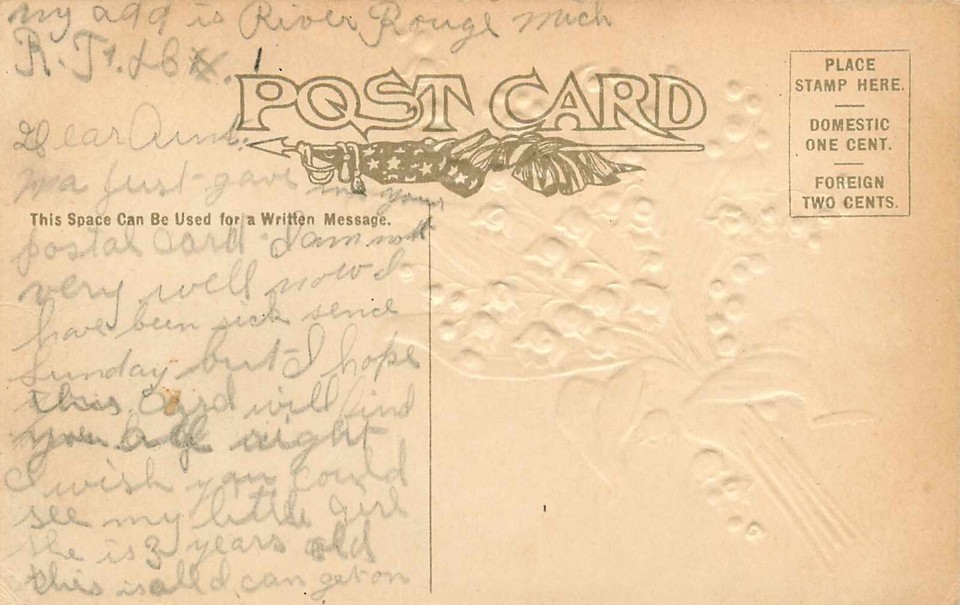 my add is River Rouge Mich
R. F. 1.
POST CARD
PLACE
STAMP HERE.
DOMESTIC
ONE CENT.
FOREIGN
TWO CENTS.
This Space Can Be Used for a Written Message.
Dear Aunt.
Ma just gave me your
postal card I am not
very well now I
have been sick sence
Sunday but I hope
this Card will find
you all right
I wish you could
see my little girl
she is 3 years old
this is all I can get on